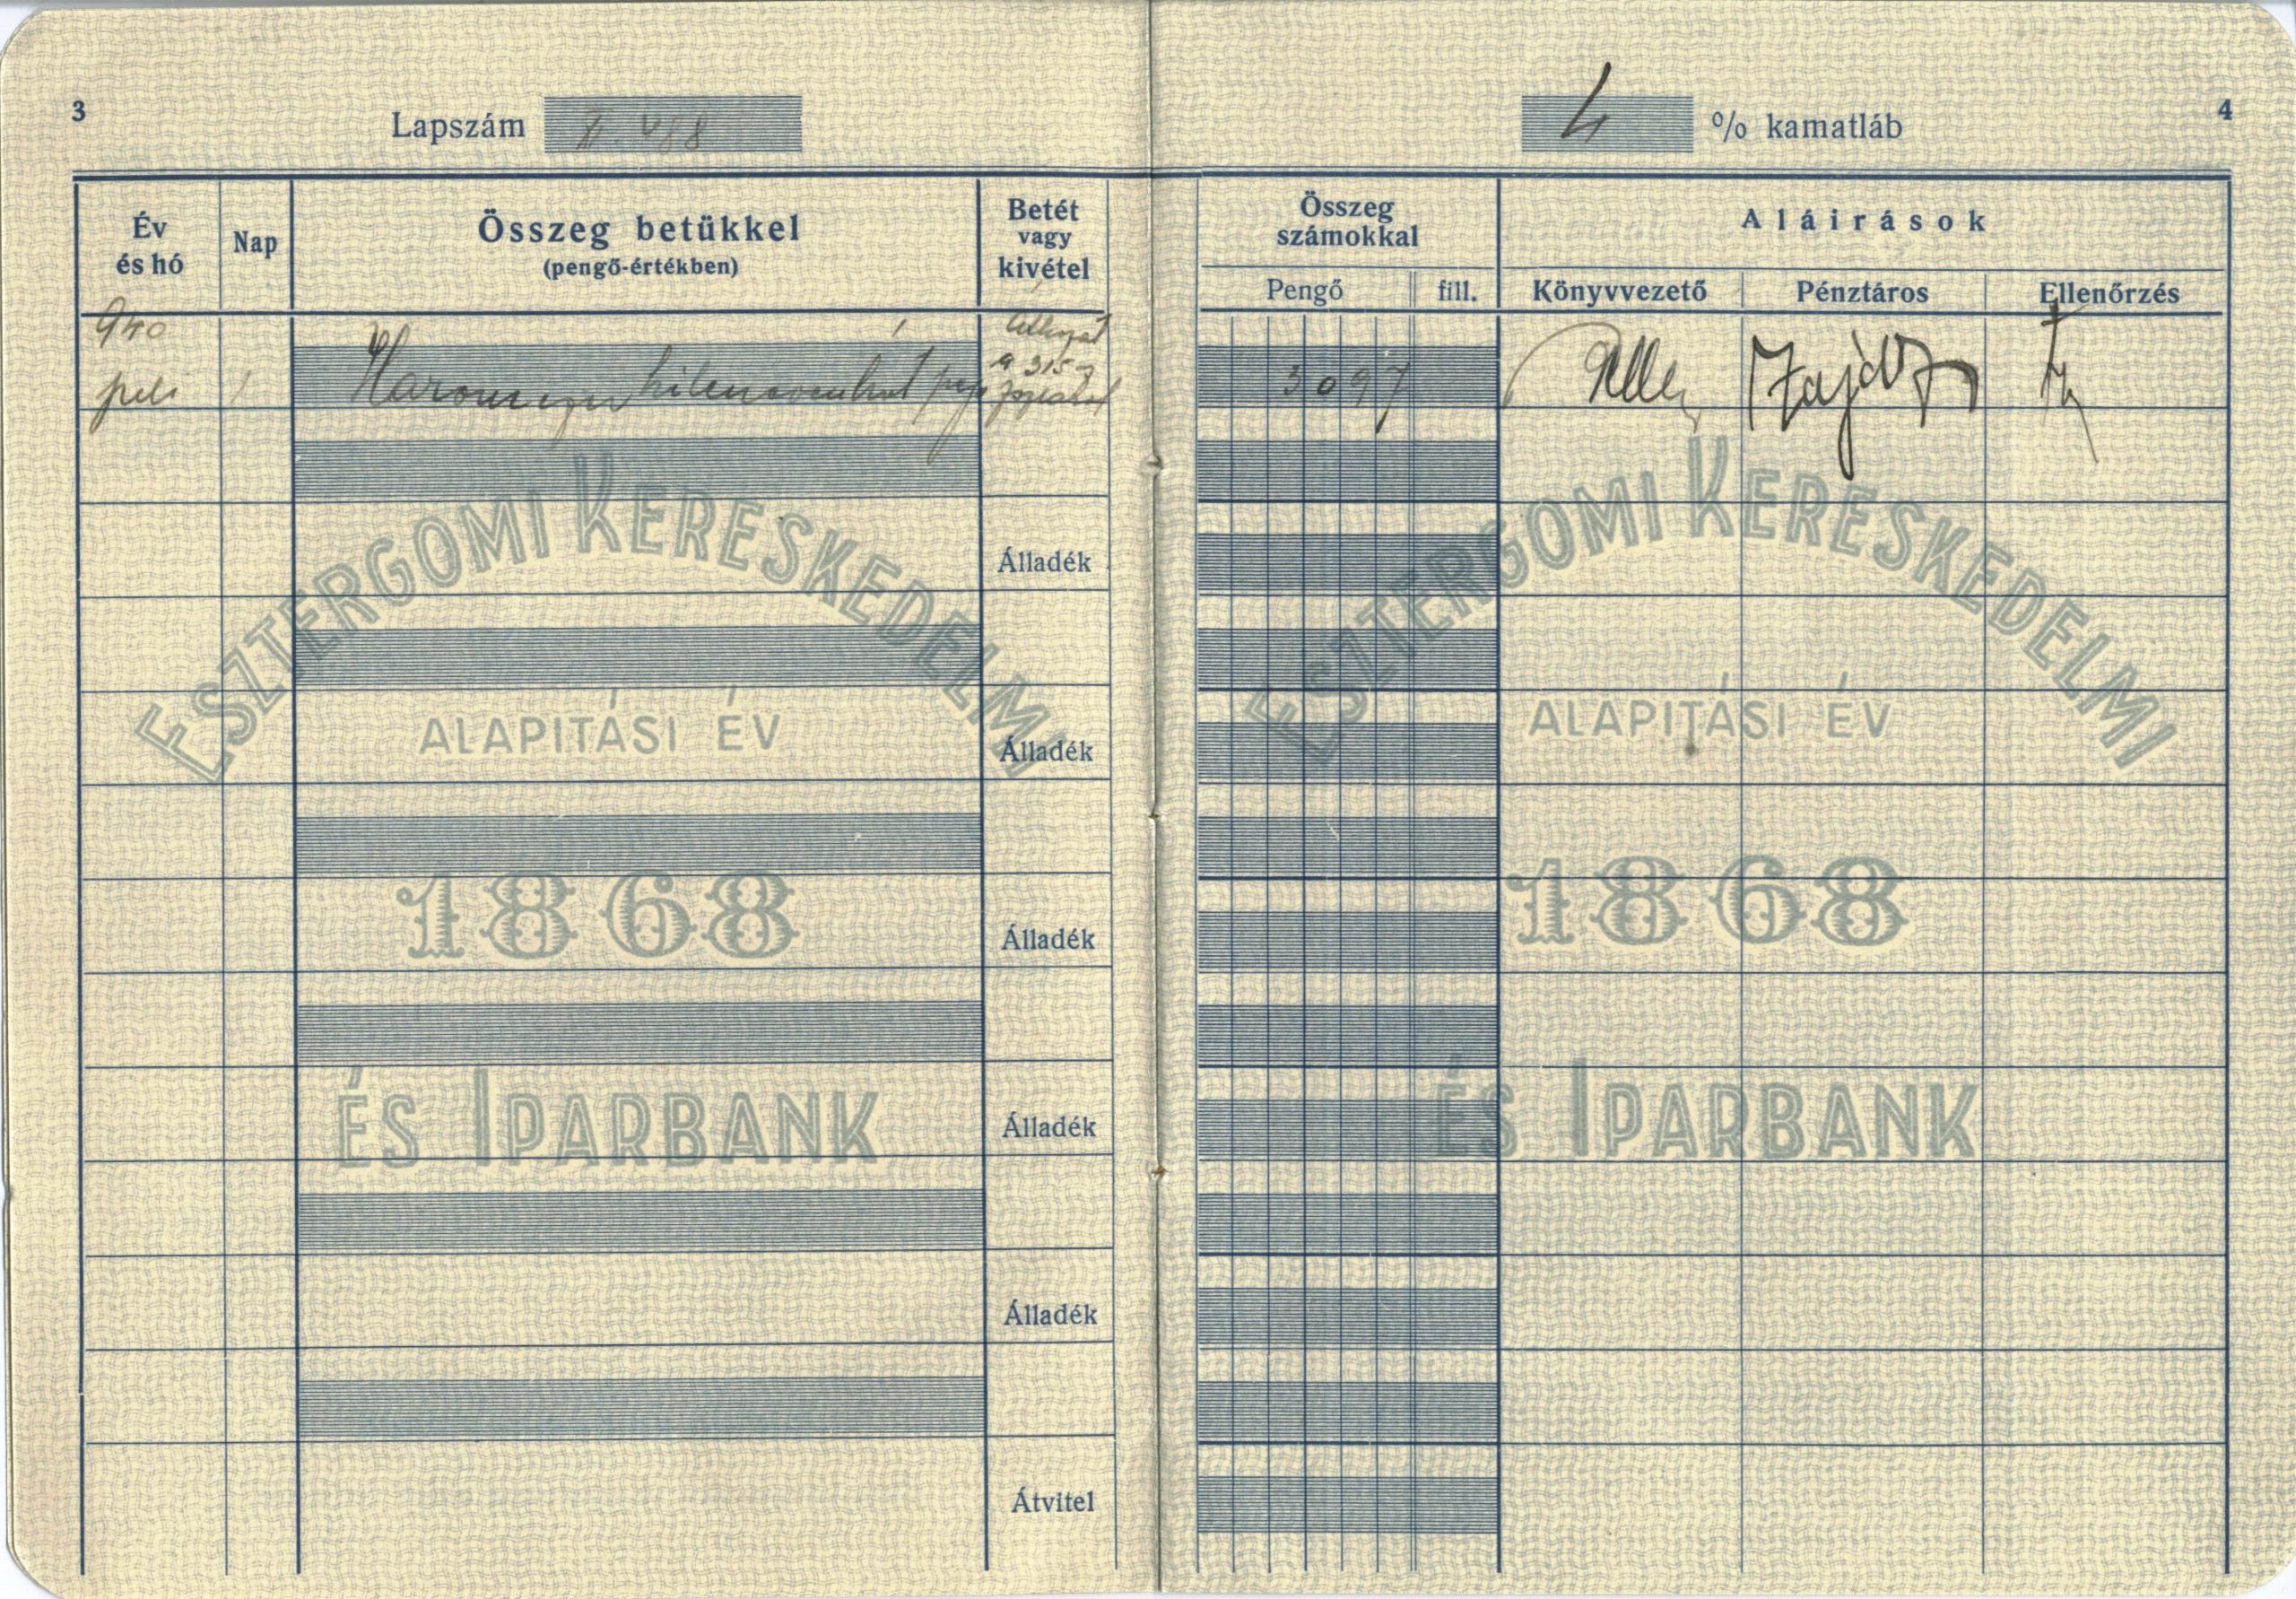 3
Lapszám II. 488
4 % kamatláb
4
Év és hó
Nap
Összeg betükkel
(pengő-értékben)
Betét vagy kivétel
Összeg számokkal
Pengő
fill.
Aláirások
Könyvvezető
Pénztáros
Ellenőrzés
940
juli 1 Háromezer kilencvenhét pengő
3097
Álladék
Álladék
Álladék
Álladék
Álladék
Átvitel
ESZTERGOMI KERESKEDELMI
ALAPITÁSI ÉV
1868
ÉS IPARBANK
ESZTERGOMI KERESKEDELMI
ALAPITÁSI ÉV
1868
ÉS IPARBANK